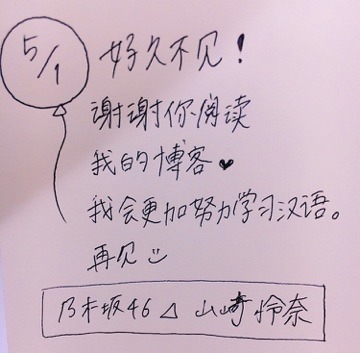 5/1
好久不见！
谢谢你阅读
我的博客♥
我会更加努力学习汉语。
再见
乃木坂46⊿ 山崎怜奈